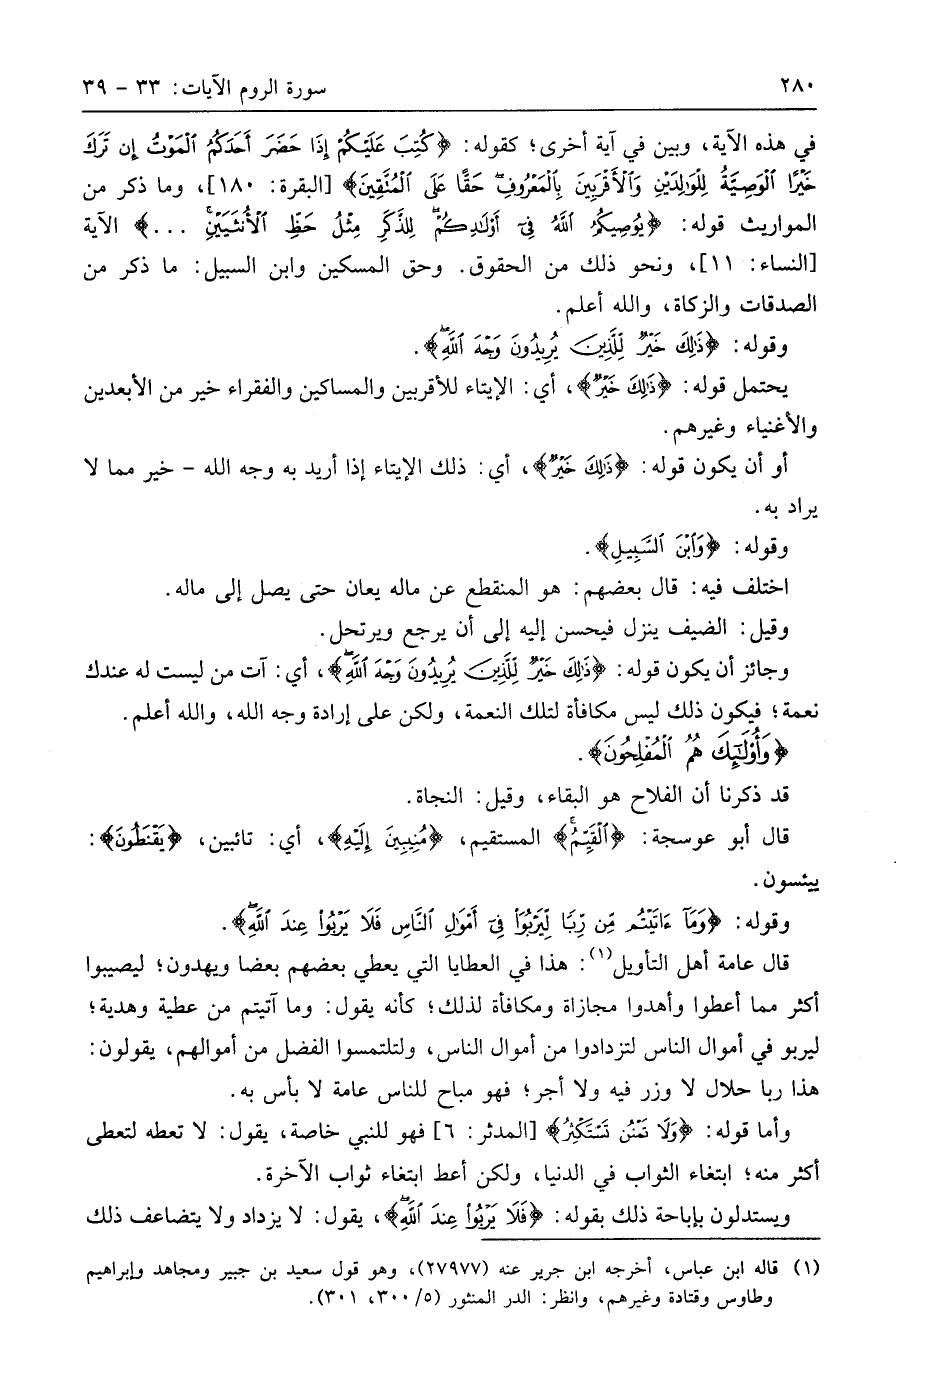 ٢٨٠ سورة الروم الآيات: ٣٣ - ٣٩
في هذه الآية، وبين في آية أخرى؛ كقوله: ﴿كُتِبَ عَلَيْكُمْ إِذَا حَضَرَ أَحَدَكُمُ ٱلْمَوْتُ إِن تَرَكَ
خَيْرًا ٱلْوَصِيَّةُ لِلْوَٰلِدَيْنِ وَٱلْأَقْرَبِينَ بِٱلْمَعْرُوفِ حَقًّا عَلَى ٱلْمُتَّقِينَ﴾ [البقرة: ١٨٠]، وما ذكر من
المواريث قوله: ﴿يُوصِيكُمُ ٱللَّهُ فِىٓ أَوْلَٰدِكُمْ لِلذَّكَرِ مِثْلُ حَظِّ ٱلْأُنثَيَيْنِ ...﴾ الآية
[النساء: ١١]، ونحو ذلك من الحقوق. وحق المسكين وابن السبيل: ما ذكر من
الصدقات والزكاة، والله أعلم.
وقوله: ﴿ذَٰلِكَ خَيْرٌ لِّلَّذِينَ يُرِيدُونَ وَجْهَ ٱللَّهِ﴾.
يحتمل قوله: ﴿ذَٰلِكَ خَيْرٌ﴾، أي: الإيتاء للأقربين والمساكين والفقراء خير من الأبعدين
والأغنياء وغيرهم.
أو أن يكون قوله: ﴿ذَٰلِكَ خَيْرٌ﴾، أي: ذلك الإيتاء إذا أريد به وجه الله - خير مما لا
يراد به.
وقوله: ﴿وَٱبْنَ ٱلسَّبِيلِ﴾.
اختلف فيه: قال بعضهم: هو المنقطع عن ماله يعان حتى يصل إلى ماله.
وقيل: الضيف ينزل فيحسن إليه إلى أن يرجع ويرتحل.
وجائز أن يكون قوله: ﴿ذَٰلِكَ خَيْرٌ لِّلَّذِينَ يُرِيدُونَ وَجْهَ ٱللَّهِ﴾، أي: آت من ليست له عندك
نعمة؛ فيكون ذلك ليس مكافأة لتلك النعمة، ولكن على إرادة وجه الله، والله أعلم.
﴿وَأُوْلَٰٓئِكَ هُمُ ٱلْمُفْلِحُونَ﴾.
قد ذكرنا أن الفلاح هو البقاء، وقيل: النجاة.
قال أبو عوسجة: ﴿ٱلْقَيِّمُ﴾ المستقيم، ﴿مُنِيبِينَ إِلَيْهِ﴾، أي: تائبين، ﴿يَقْنَطُونَ﴾:
ييئسون.
وقوله: ﴿وَمَآ ءَاتَيْتُم مِّن رِّبًا لِّيَرْبُوَا۟ فِىٓ أَمْوَٰلِ ٱلنَّاسِ فَلَا يَرْبُوا۟ عِندَ ٱللَّهِ﴾.
قال عامة أهل التأويل(١): هذا في العطايا التي يعطي بعضهم بعضا ويهدون؛ ليصيبوا
أكثر مما أعطوا وأهدوا مجازاة ومكافأة لذلك؛ كأنه يقول: وما آتيتم من عطية وهدية؛
ليربو في أموال الناس لتزدادوا من أموال الناس، ولتلتمسوا الفضل من أموالهم، يقولون:
هذا ربا حلال لا وزر فيه ولا أجر؛ فهو مباح للناس عامة لا بأس به.
وأما قوله: ﴿وَلَا تَمْنُن تَسْتَكْثِرُ﴾ [المدثر: ٦] فهو للنبي خاصة، يقول: لا تعطه لتعطى
أكثر منه؛ ابتغاء الثواب في الدنيا، ولكن أعط ابتغاء ثواب الآخرة.
ويستدلون بإباحة ذلك بقوله: ﴿فَلَا يَرْبُوا۟ عِندَ ٱللَّهِ﴾، يقول: لا يزداد ولا يتضاعف ذلك
(١) قاله ابن عباس، أخرجه ابن جرير عنه (٢٧٩٧٧)، وهو قول سعيد بن جبير ومجاهد وإبراهيم
وطاوس وقتادة وغيرهم، وانظر: الدر المنثور (٥/ ٣٠٠، ٣٠١).